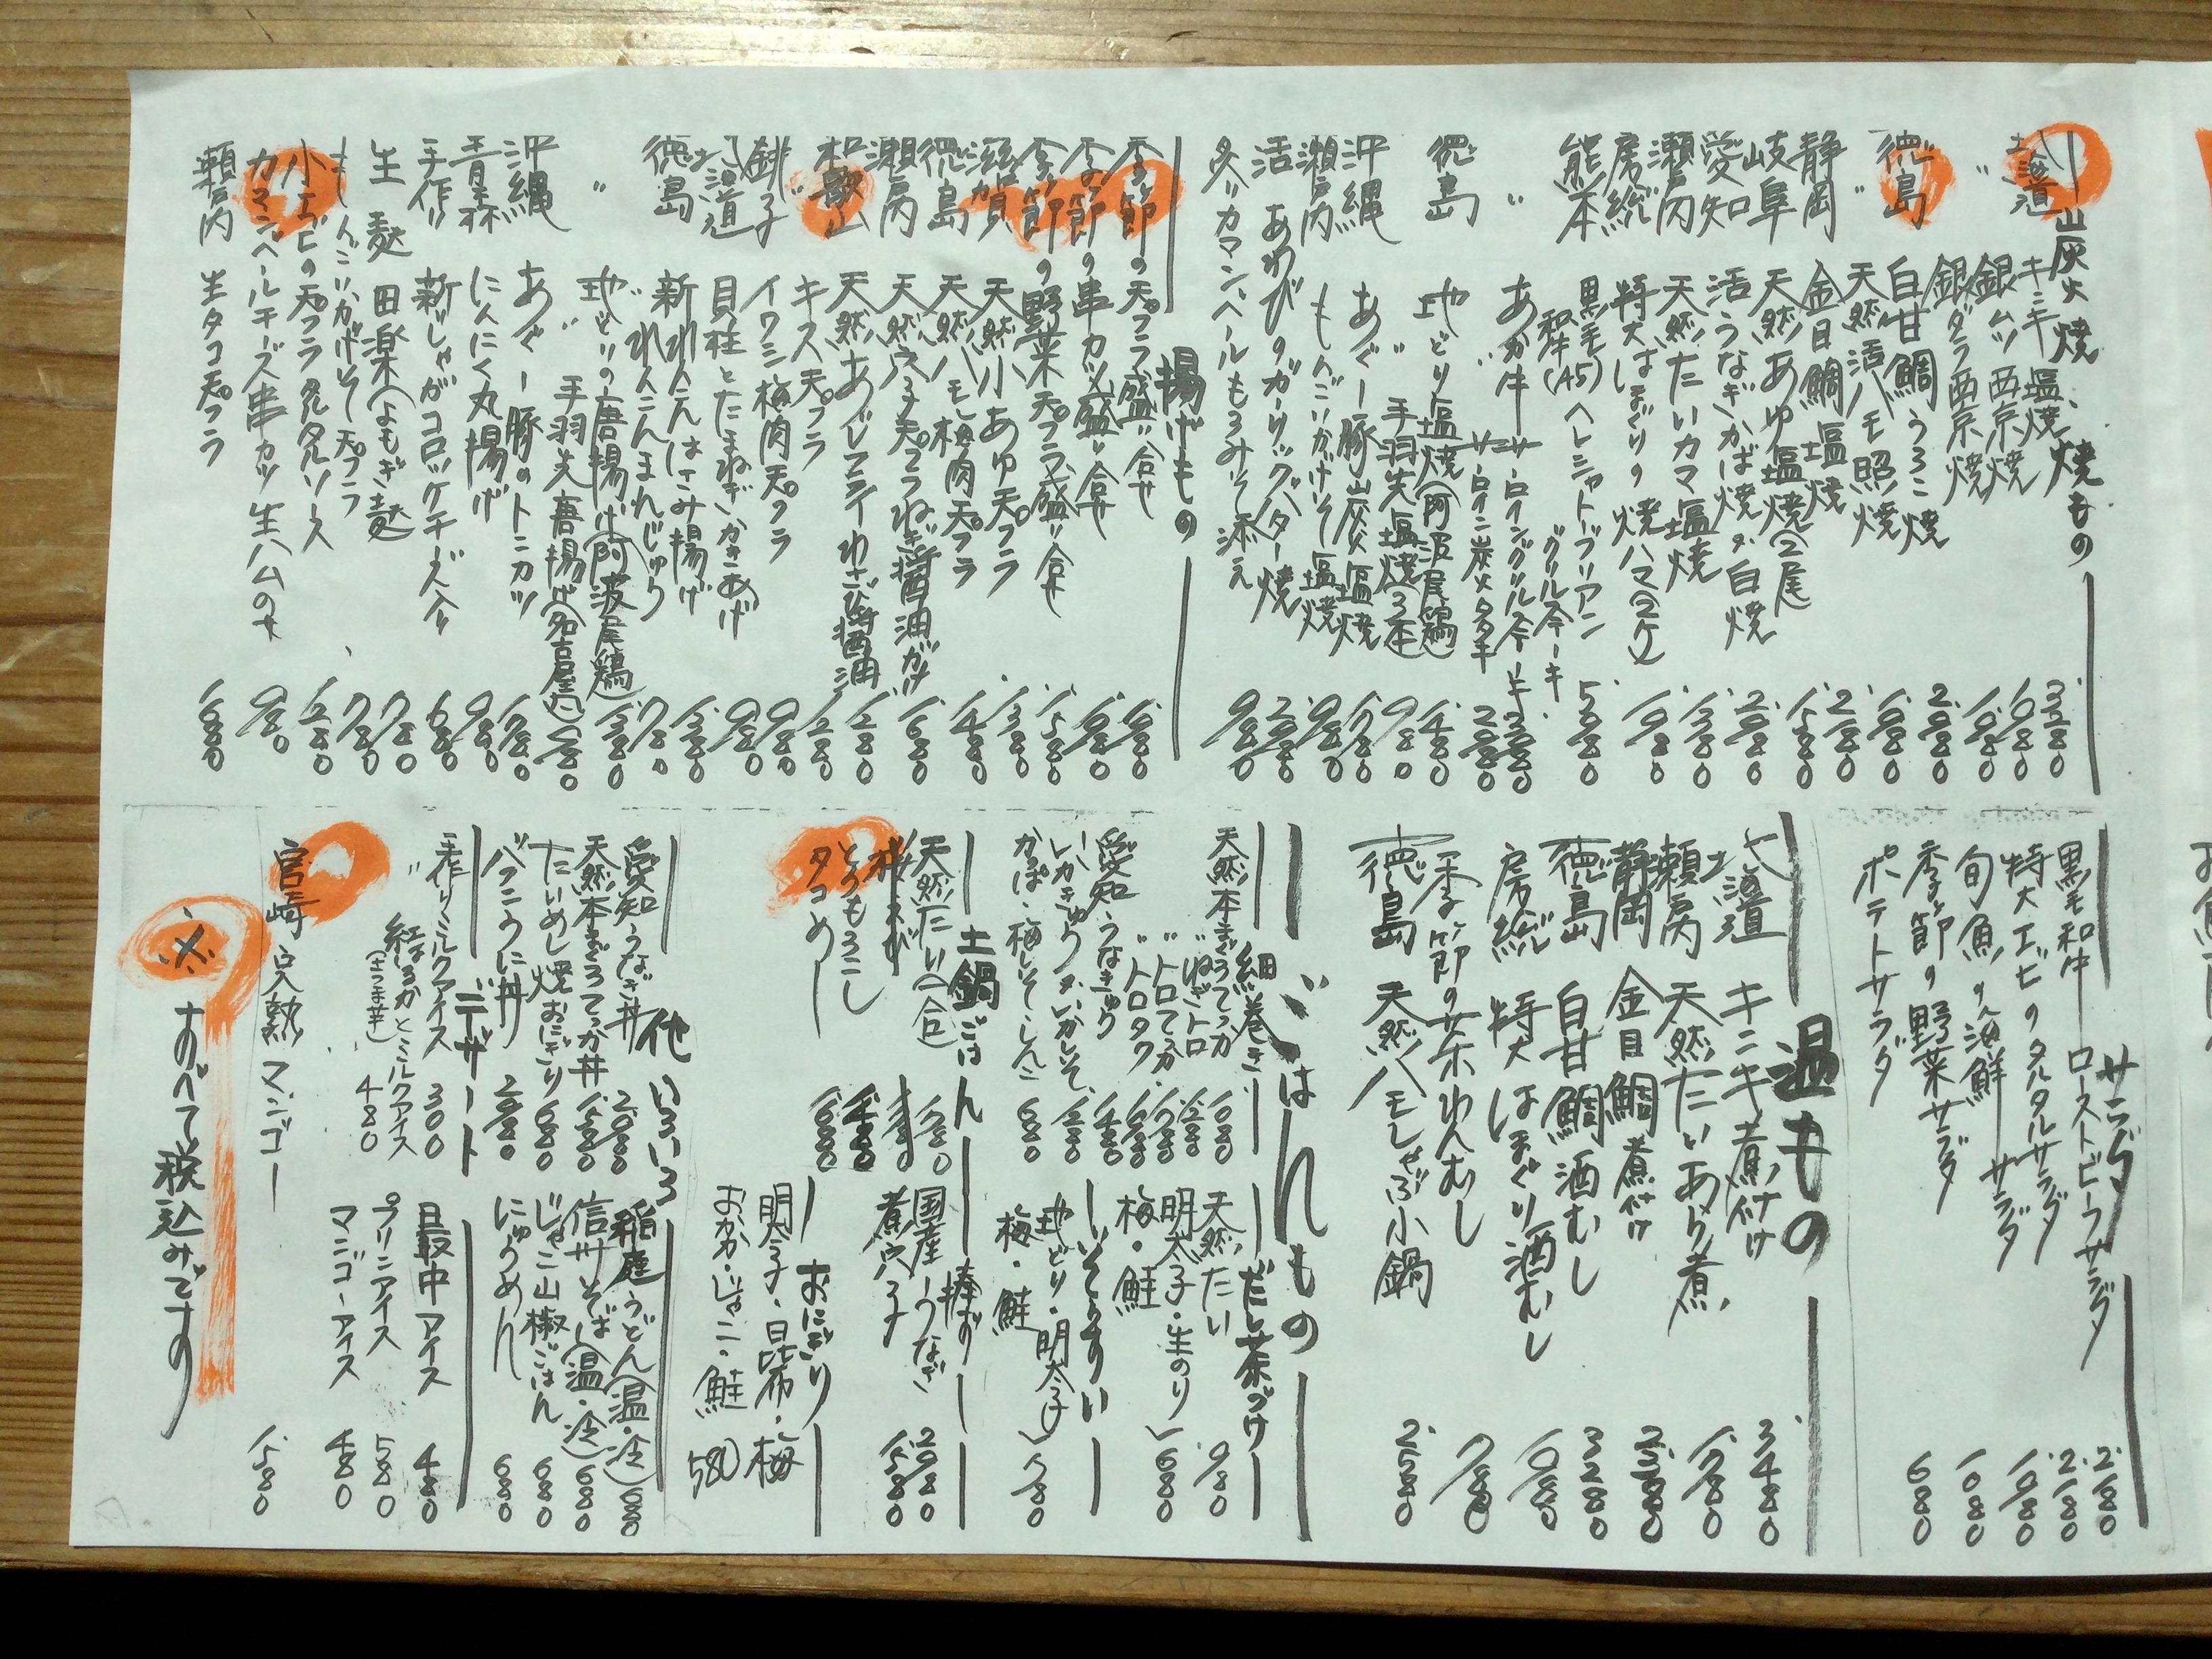 炭火焼・焼もの
北海道 キンキ塩焼 3280
〃 銀ムツ西京焼 1080
銀ダラ西京焼 1080
徳島 白甘鯛うろこ焼 2080
〃 天然活ハモ照焼 1080
静岡 金目鯛塩焼 2180
岐阜 天然あゆ塩焼(2尾) 1580
愛知 活うなぎかば焼・白焼 2080
瀬戸内 天然たいカマ塩焼 1380
房総 特大はまぐりの焼ハマ(2ケ) 1080
熊本 黒毛和牛(A5)ヘレシャトーブリアン
グリルステーキ 5080
〃 あか牛サーロイングリルステーキ
〃 サーロイン炭火タタキ 2080
徳島 地どり塩焼(阿波尾鶏) 1480
〃 手羽先塩焼(3本) 980
沖縄 あぐー豚炭火塩焼 1780
瀬戸内 もんごいかげそ塩焼 980
活あわびのガーリックバター焼 2080
炙りカマンベールもろみそ添え 980
揚げもの
季節の天プラ盛り合せ 1680
季節の串カツ盛り合せ 1080
季節の野菜天プラ盛り合せ 1580
滋賀 天然小あゆ天プラ 1380
徳島 天然ハモ梅肉天プラ 1480
瀬戸内 天然穴子天プラねぎ醤油がけ 1680
和歌山 天然あじフライわさび醤油 1280
〃 キス天プラ 1280
銚子 イワシ梅肉天プラ 980
北海道 貝柱とたまねぎかきあげ 980
徳島 新れんこんはさみ揚げ 1380
〃 れんこんまんじゅう 780
地どりの唐揚げ(阿波尾鶏) 1380
〃 手羽先唐揚げ(名古屋風) 580
沖縄 あぐー豚のトンカツ 1780
青森 にんにく丸揚げ 980
手作り 新じゃがコロッケチーズ入り 680
生麩 田楽(よもぎ麩) 780
もんごいかげそ天プラ 780
小エビの天プラタルタルソース 1280
カマンベールチーズ串カツ生ハムのせ 980
瀬戸内 生タコ天プラ 1680
サラダ
黒毛和牛ローストビーフサラダ 2180
特大エビのタルタルサラダ 2180
旬魚の海鮮サラダ 1080
季節の野菜サラダ 1080
ポテトサラダ 680
温もの
北海道 キンキ煮付け 3480
瀬戸内 天然たいあら煮 1780
静岡 金目鯛煮付け
徳島 白甘鯛酒むし 3280
房総 特大はまぐり酒むし 1080
季節の茶わんむし 780
徳島 天然ハモしゃぶ小鍋 2580
ごはんもの
細巻き
天然本まぐろてっか 1080
〃 ねぎトロ 1280
〃 トロてっか 1780
〃 トロタク 1680
愛知 うなきゅう 1480
いかきゅう・いかしそ 1280
かっぱ・梅しそ・しんこ 680
だし茶づけ
天然たい 980
明太子・生のり
梅・鮭 680
いそうすい
地どり・明太子
梅・鮭 580
土鍋ごはん
天然たい(一合) 1780
とうもろこし 1480
タコめし 1680
棒ずし
国産うなぎ 2080
煮穴子 1580
おにぎり
明太子・昆布・梅
おかか・じゃこ・鮭 580
他いろいろ
愛知 うなぎ丼 2080
天然本まぐろてっか丼 1580
たいめし焼おにぎり 680
バフンうに丼 2980
稲庭うどん(温・冷) 680
信州そば(温・冷) 680
じゃこ山椒ごはん 680
にゅうめん 680
デザート
手作りミルクアイス 300
〃 紅はるかとミルクアイス
(さつま芋) 480
最中アイス 480
プリンアイス 580
マンゴーアイス 480
宮崎 完熟マンゴー 1580
※すべて税込みです